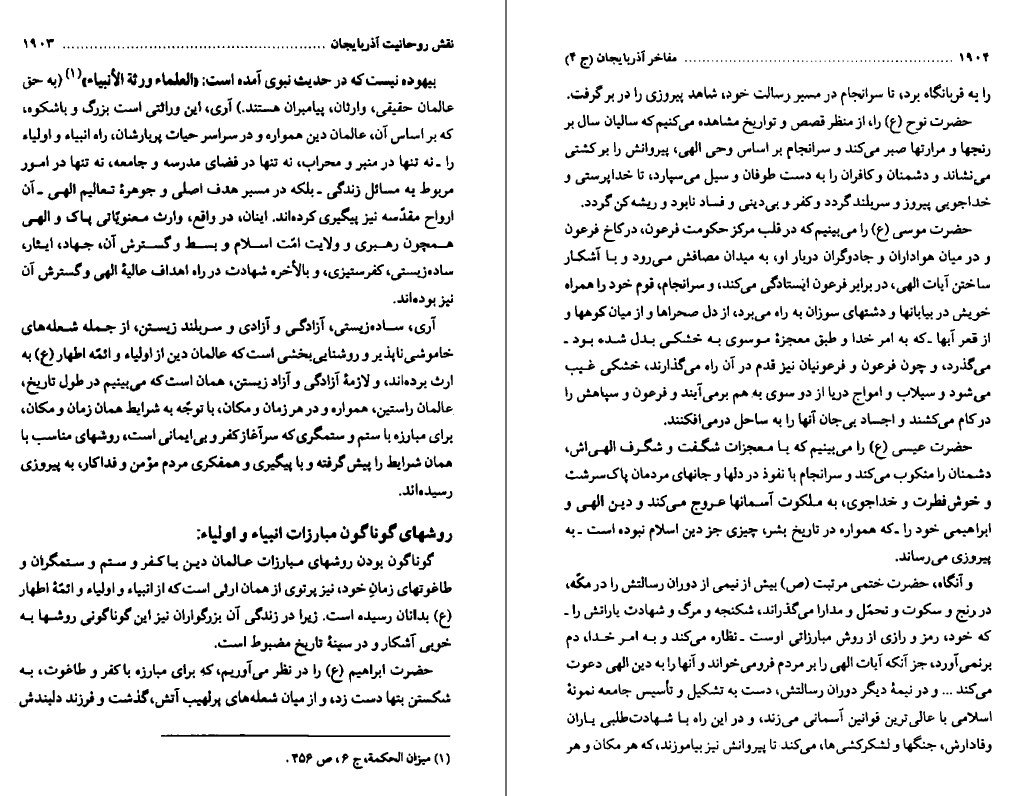 نقش روحانیت آذربایجان ........................................................ ۱۹۰۳
بیهوده نیست که در حدیث نبوی آمده است: «العلماء ورثة الأنبیاء»(۱) (به حق
عالمان حقیقی، وارثان، پیامبران هستند.) آری، این وراثتی است بزرگ و باشکوه،
که بر اساس آن، عالمان دین همواره و در سراسر حیات پربارشان، راه انبیاء و اولیاء
را ـ نه تنها در منبر و محراب، نه تنها در فضای مدرسه و جامعه، نه تنها در امور
مربوط به مسائل زندگی ـ بلکه در مسیر هدف اصلی و جوهرهٔ تعالیم الهی ـ آن
ارواح مقدّسه نیز پیگیری کرده‌اند. اینان، در واقع، وارث معنویّاتی پاک و الهی
همچون رهبری و ولایت امّت اسلام و بسط و گسترش آن، جهاد، ایثار،
ساده‌زیستی، کفرستیزی، و بالأخره شهادت در راه اهداف عالیهٔ الهی و گسترش آن
نیز بوده‌اند.
آری، ساده‌زیستی، آزادگی و آزادی و سربلند زیستن، از جمله شعله‌های
خاموشی‌ناپذیر و روشنایی‌بخشی است که عالمان دین از اولیاء و ائمّه اطهار (ع) به
ارث برده‌اند، و لازمهٔ آزادگی و آزاد زیستن، همان است که می‌بینیم در طول تاریخ،
عالمان راستین، همواره و در هر زمان و مکان، با توجّه به شرایط همان زمان و مکان،
برای مبارزه با ستم و ستمگری که سرآغاز کفر و بی‌ایمانی است، روشهای مناسب با
همان شرایط را پیش گرفته و با پیگیری و همفکری مردم مؤمن و فداکار، به پیروزی
رسیده‌اند.
روشهای گوناگون مبارزات انبیاء و اولیاء:
گوناگون بودن روشهای مبارزات عالمان دین با کفر و ستم و ستمگران و
طاغوتهای زمانِ خود، نیز پرتوی از همان ارثی است که از انبیاء و اولیاء و ائمّهٔ اطهار
(ع) بدانان رسیده است. زیرا در زندگی آن بزرگواران نیز این گوناگونی روشها به
خوبی آشکار و در سینهٔ تاریخ مضبوط است.
حضرت ابراهیم (ع) را در نظر می‌آوریم، که برای مبارزه با کفر و طاغوت، به
شکستن بتها دست زد، و از میان شعله‌های پرلهیب آتش، گذشت و فرزند دلبندش
(۱) میزان الحکمة، ج ۶، ص ۴۵۶.
۱۹۰۴ ........................................................ مفاخر آذربایجان (ج ۴)
را به قربانگاه برد، تا سرانجام در مسیر رسالت خود، شاهد پیروزی را در بر گرفت.
حضرت نوح (ع) را، از منظر قصص و تواریخ مشاهده می‌کنیم که سالیان سال بر
رنجها و مرارتها صبر می‌کند و سرانجام بر اساس وحی الهی، پیروانش را بر کشتی
می‌نشاند و دشمنان و کافران را به دست طوفان و سیل می‌سپارد، تا خداپرستی و
خداجویی پیروز و سربلند گردد و کفر و بی‌دینی و فساد نابود و ریشه‌کن گردد.
حضرت موسی (ع) را می‌بینیم که در قلب مرکز حکومت فرعون، در کاخ فرعون
و در میان هواداران و جادوگران دربار او، به میدان مصافش می‌رود و با آشکار
ساختن آیات الهی، در برابر فرعون ایستادگی می‌کند، و سرانجام، قوم خود را همراه
خویش در بیابانها و دشتهای سوزان به راه می‌برد، از دل صحراها و از میان کوهها و
از قعر آبها ـ که به امر خدا و طبق معجزهٔ موسوی به خشکی بدل شده بود ـ
می‌گذرد، و چون فرعون و فرعونیان نیز قدم در آن راه می‌گذارند، خشکی غیب
می‌شود و سیلاب و امواج دریا از دو سوی به هم برمی‌آیند و فرعون و سپاهش را
در کام می‌کشند و اجساد بی‌جان آنها را به ساحل درمی‌افکنند.
حضرت عیسی (ع) را می‌بینیم که با معجزات شگفت و شگرف الهی‌اش،
دشمنان را منکوب می‌کند و سرانجام با نفوذ در دلها و جانهای مردمان پاک‌سرشت
و خوش‌فطرت و خداجوی، به ملکوت آسمانها عروج می‌کند و دین الهی و
ابراهیمی خود را ـ که همواره در تاریخ بشر، چیزی جز دین اسلام نبوده است ـ به
پیروزی می‌رساند.
و آنگاه، حضرت ختمی مرتبت (ص) بیش از نیمی از دوران رسالتش را در مکّه،
در رنج و سکوت و تحمّل و مدارا می‌گذراند، شکنجه و مرگ و شهادت یارانش را ـ
که خود، رمز و رازی از روش مبارزاتی اوست ـ نظاره می‌کند و به امر خدا، دم
برنمی‌آورد، جز آنکه آیات الهی را بر مردم فرومی‌خواند و آنها را به دین الهی دعوت
می‌کند ... و در نیمهٔ دیگر دوران رسالتش، دست به تشکیل و تأسیس جامعه نمونهٔ
اسلامی با عالی‌ترین قوانین آسمانی می‌زند، و در این راه با شهادت‌طلبی یاران
وفادارش، جنگها و لشکرکشی‌ها، می‌کند تا پیروانش نیز بیاموزند، که هر مکان و هر